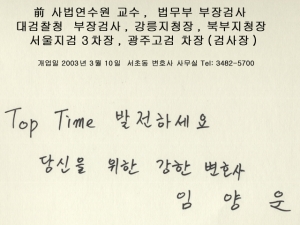 前 사법연수원 교수, 법무부 부장검사
대검찰청 부장검사, 강릉지청장, 북부지청장
서울지검 3차장, 광주고검 차장(검사장)
개업일 2003년 3월 10일 서초동 변호사 사무실 Tel: 3482-5700
Top Time 발전하세요
당신을 위한 강한 변호사
임 양 운